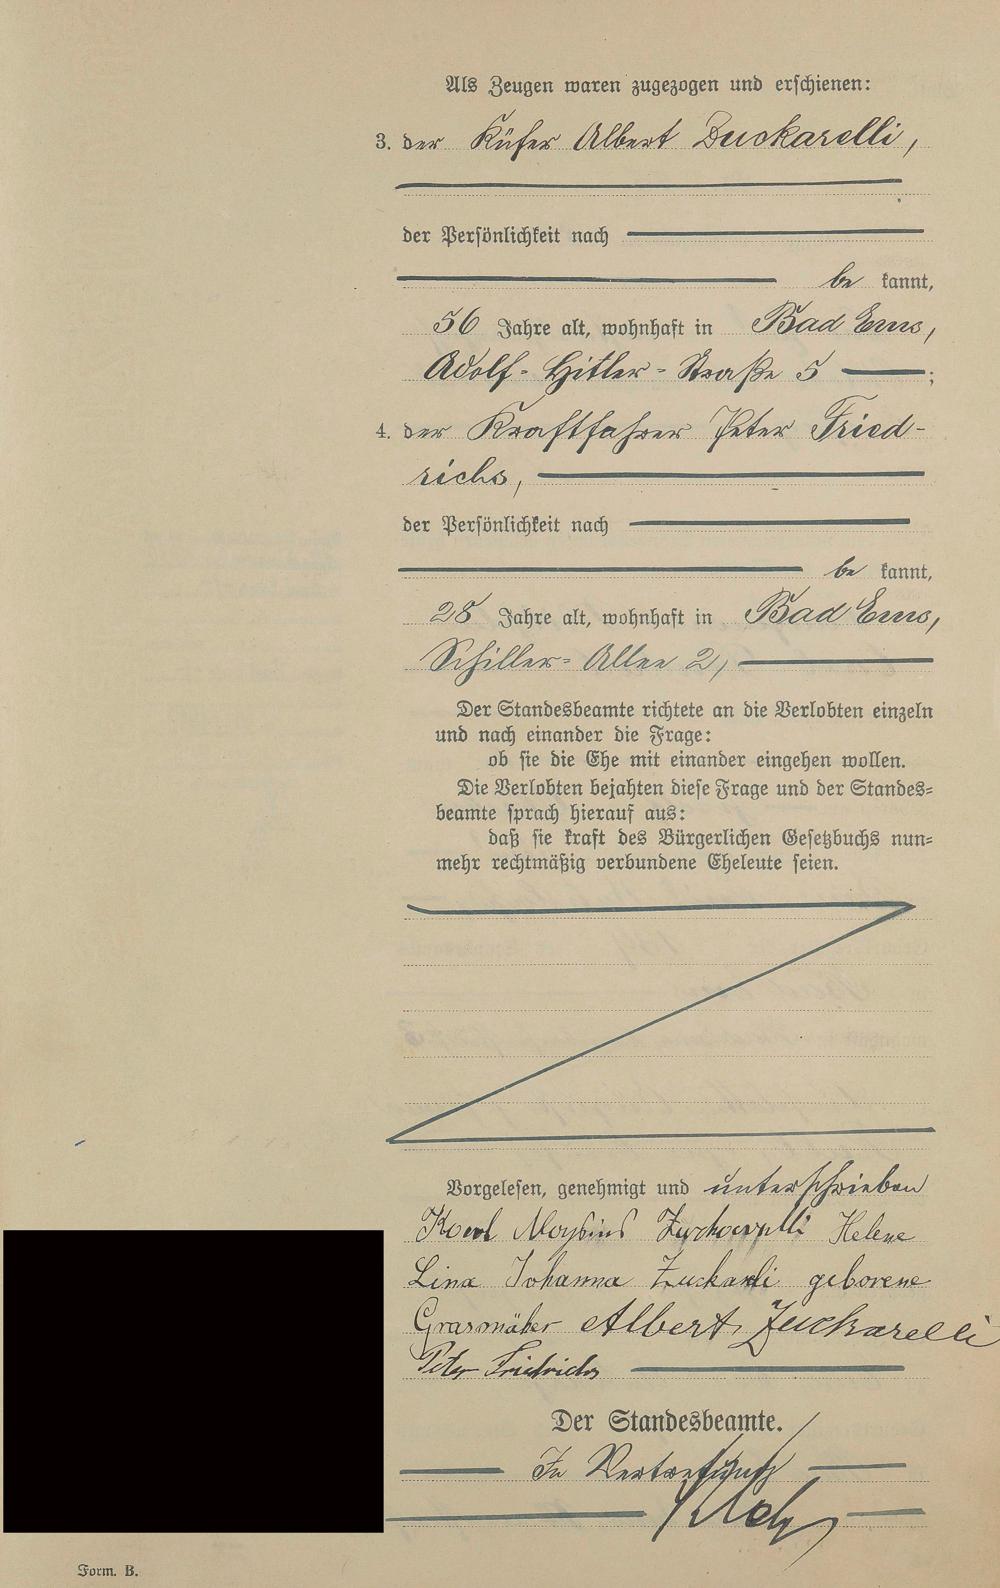 Als Zeugen waren zugezogen und erschienen:
3. der Küfer Albert Zuckarelli,
der Persönlichkeit nach
be kannt,
56 Jahre alt, wohnhaft in Bad Ems,
Adolf-Hitler-Straße 5 ;
4. der Kraftfahrer Peter Fried-
richs,
der Persönlichkeit nach
be kannt,
28 Jahre alt, wohnhaft in Bad Ems,
Schiller-Allee 2,
Der Standesbeamte richtete an die Verlobten einzeln
und nach einander die Frage:
ob sie die Ehe mit einander eingehen wollen.
Die Verlobten bejahten diese Frage und der Standes-
beamte sprach hierauf aus:
daß sie kraft des Bürgerlichen Gesetzbuchs nun-
mehr rechtmäßig verbundene Eheleute seien.
Vorgelesen, genehmigt und unterschrieben
Karl Aloysius Zuckarelli Helene
Lina Johanna Zuckarelli geborene
Grasmäher Albert Zuckarelli
Peter Friedrichs
Der Standesbeamte.
In Vertretung
Form. B.